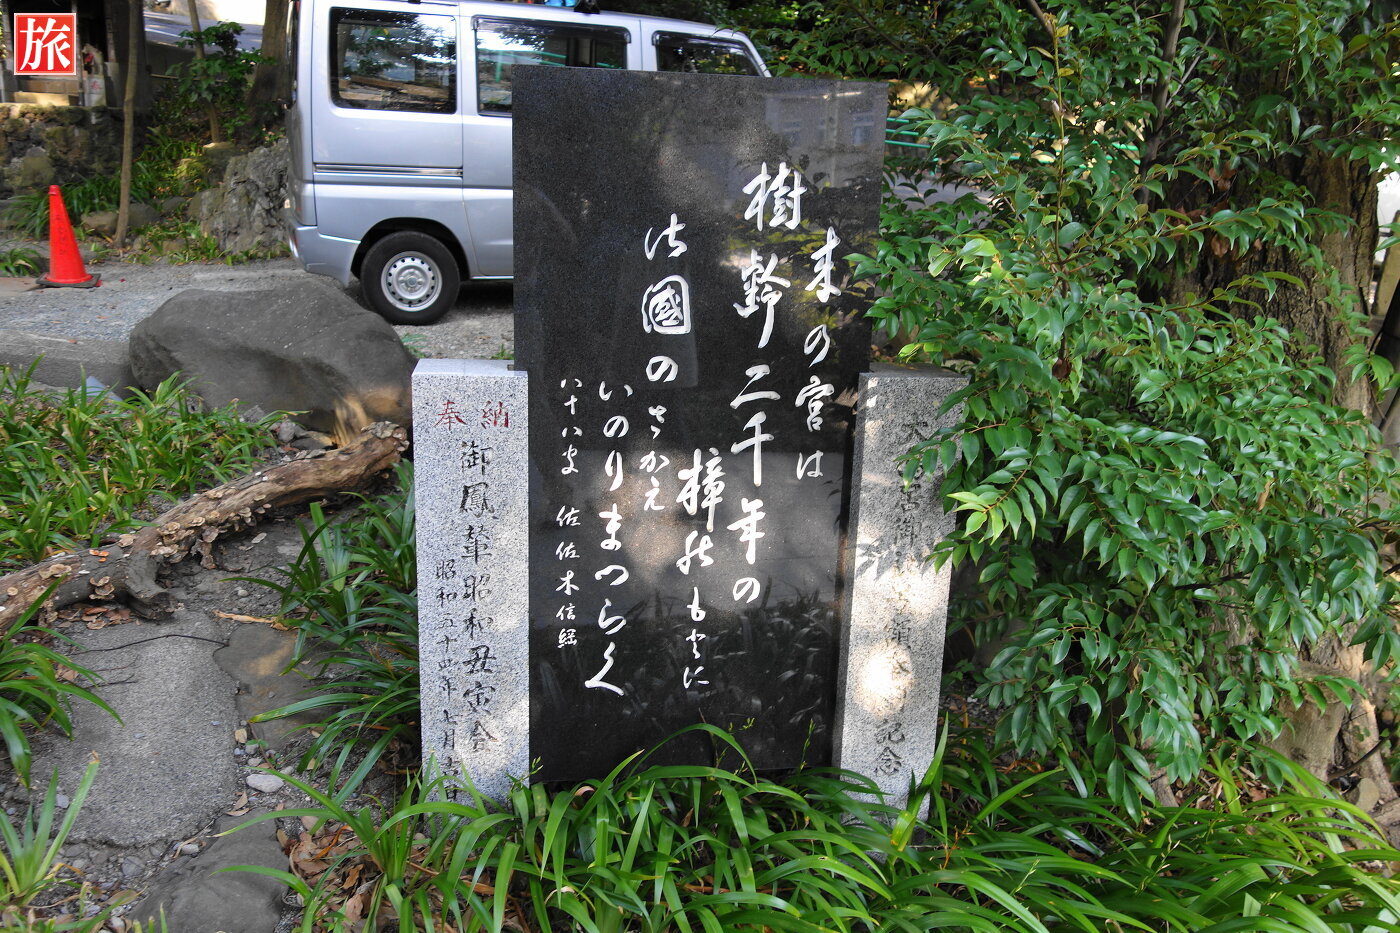 旅
来の宮は
樹齢二千年の
樟能もとに
此國のさかえ
いのりまつらく
八十八叟 佐佐木信綱
奉納
御鳳輦昭和丑寅会
昭和五十四年七月吉日
記念